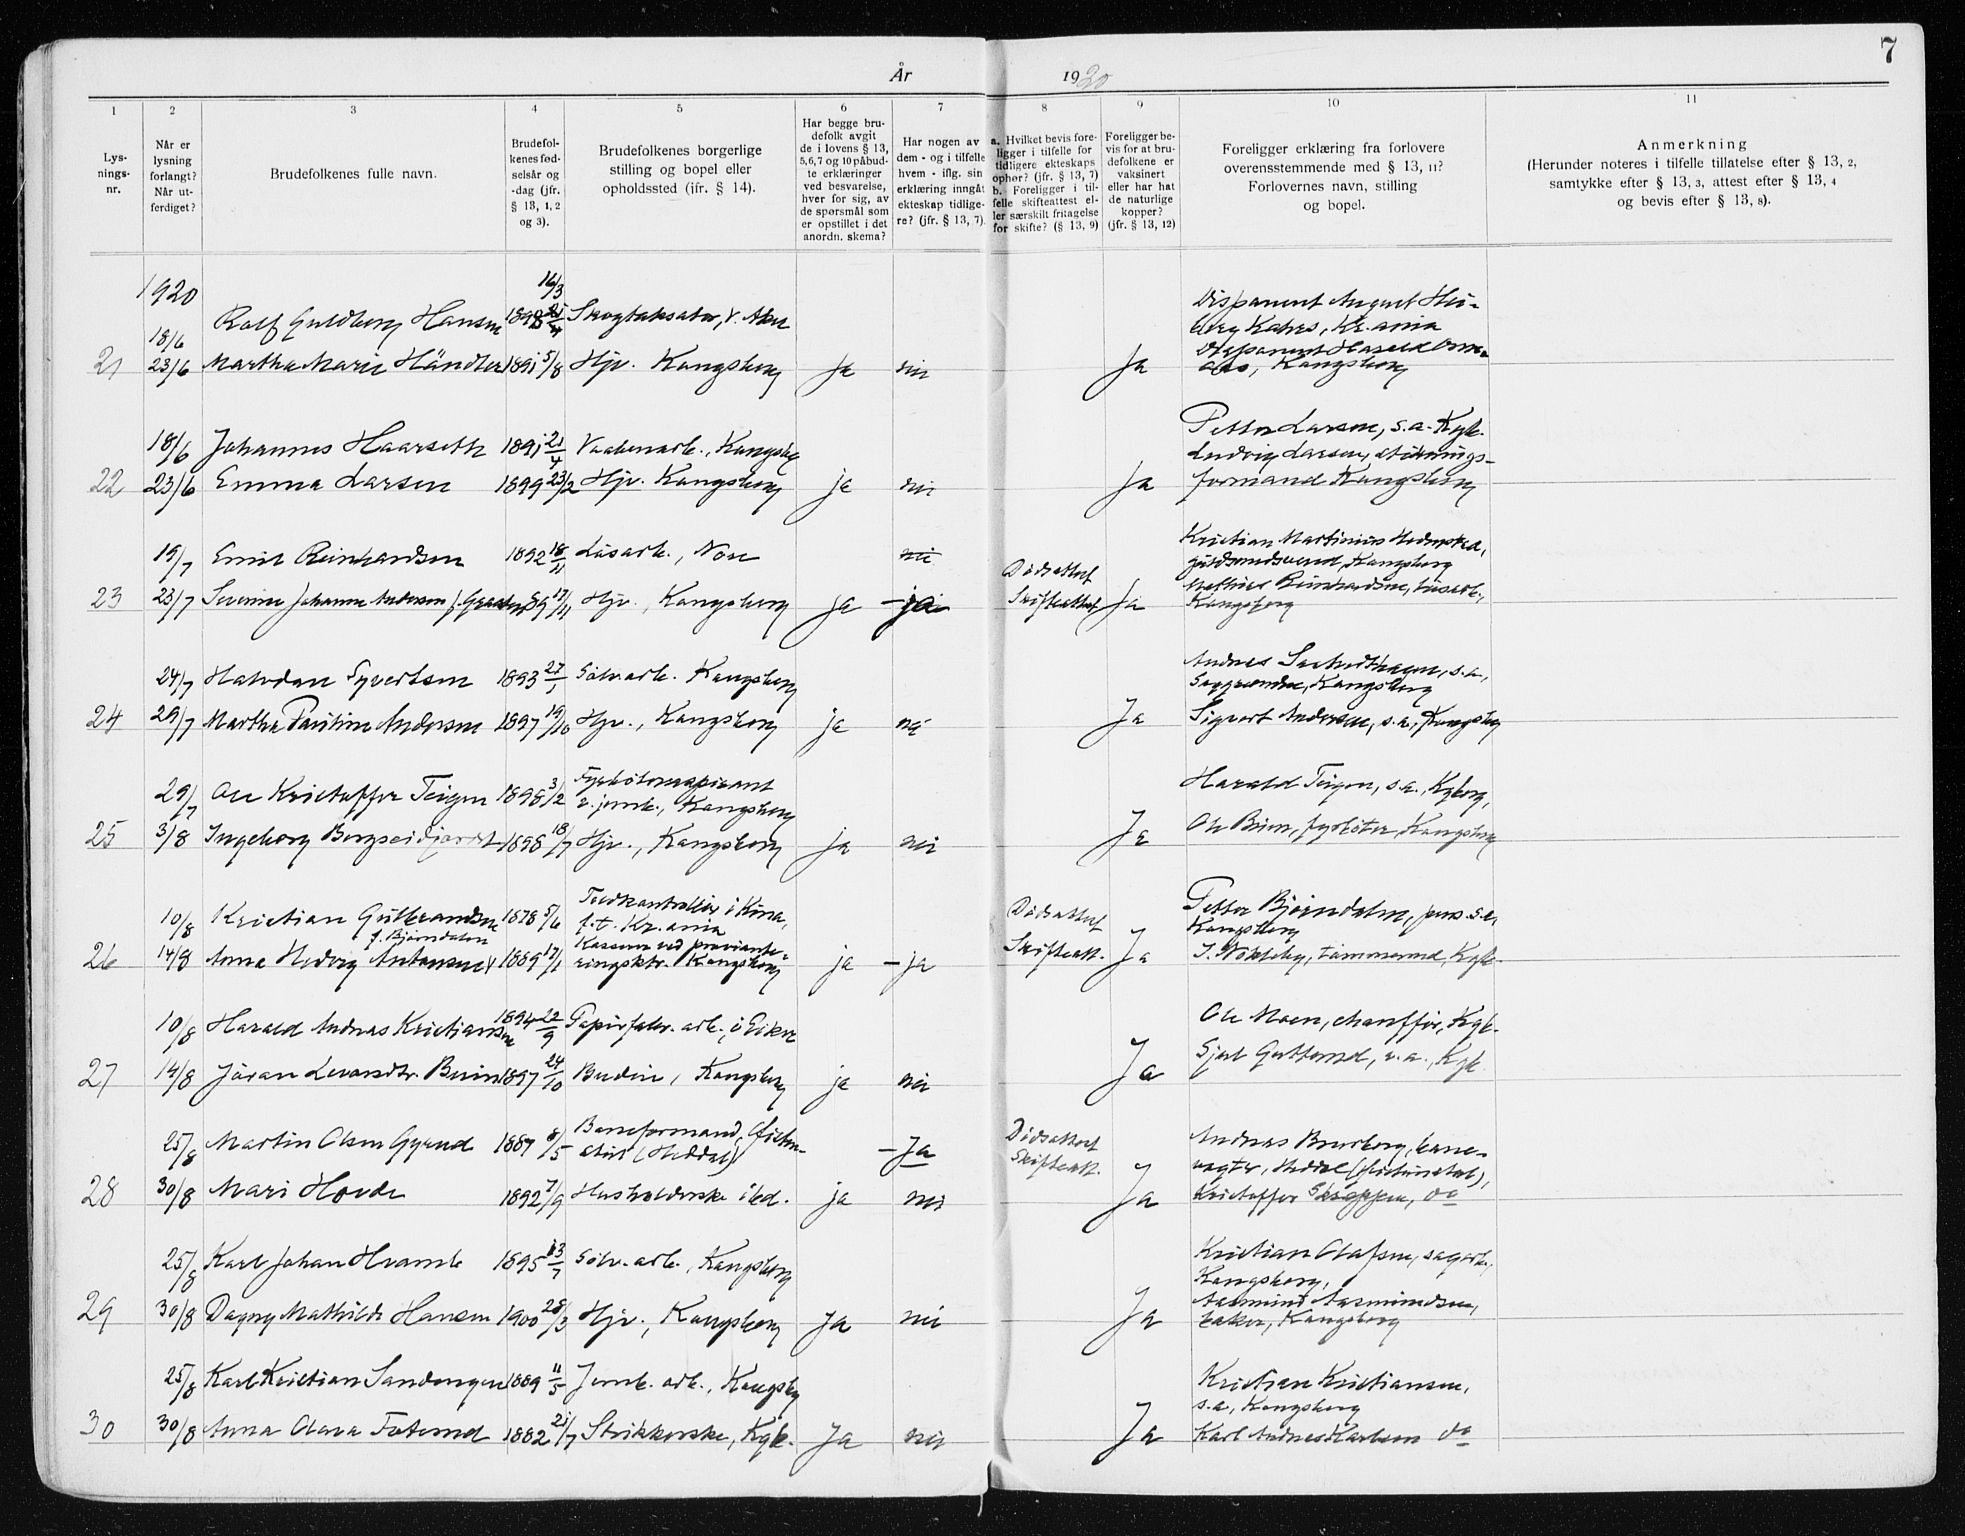 7
År 1920
1 2 3 4 5 6 7 8 9 10 11
Lys-
nings-
nr.
Når er
lysning
forlangt?
Når ut-
ferdiget?
Brudefolkenes fulle navn.
Brudefol-
kenes fød-
selsår og
-dag (jfr.
§ 13, 1, 2
og 3).
Brudefolkenes borgerlige
stilling og bopel eller
opholdssted (ifr. § 14).
Har begge bru-
defolk avgit
de i lovens § 13,
5,6,7 og 10 påbud-
te erklæringer
ved besvarelse,
hver for sig, av
de spørsmål som
er opstillet i det
anordn. skema?
Har nogen av
dem - og i tilfelle
hvem - iflg. sin
erklæring inngåt
ekteskap tidlige-
re? (jfr. § 13, 7)
a. Hvilket bevis fore-
ligger i tilfelle for
tidligere ekteskaps
ophør? (jfr. § 13, 7)
b. Foreligger i til-
felle skifteattest el-
ler særskilt fritagelse
for skifte? (§ 13, 9)
Foreligger be-
vis for at bru-
defolkene er
vaksinert
eller har hat
de naturlige
kopper?
(jfr. § 13, 12)
Foreligger erklæring fra forlovere
overensstemmende med § 13, 11?
Forlovernes navn, stilling
og bopel.
Anmerkning
(Herunder noteres i tilfelle tillatelse efter § 13, 2,
samtykke efter § 13, 3, attest efter § 13, 4
og bevis efter § 13, 8).
1920
16/3
18/6 Rolf Guldberg Hansen Skogtaksator, V. Aker
Disponent August Hei-
berg Kahrs, Kr.ania
21 23/6 Martha Marie Händler 1891 5/8 Hjv. Kongsberg ja nei Ja
Kongsberg
18/6 Johannes Haarseth 1891 21/4 Vaabenarb., Kongsbg
Petter Larsen, s.a. Kgb.
Ludvig Larsen, stignings-
22 23/6 Emma Larsen 1899 23/2 Hjv. Kongsberg ja nei Ja formand Kongsberg
19/7 Emil Reinhardsen 1892 18/11 Løsarb., Nore nei
Kristian Martinius
Kongsberg
Dødsattest
Mathias Reinhardsen, løsarb.,
23 23/7 Severine Johanne Andersen f. 89 17/11 Hjv., Kongsberg ja – ja Skifteattest Ja Kongsberg
24/7 Halvdan Syvertsen 1893 27/1 Sølv.arb. Kongsberg
Andres s.a.,
Saggrenden, Kongsberg
24 29/7 Martha Pauline Andersen 1897 19/10 Hjv., Kongsberg ja nei Ja Sigvart Andersen, s.a., Kongsberg
29/7 Ole Kristoffer Teigen 1898 3/2 Fyrbøteraspirant
v. jernb., Kongsberg
Harald Teigen, s.a., Kgberg,
25 3/8 Ingeborg Bergseidfjordet 1898 18/7 Hjv., Kongsberg ja nei Ja Ole Brien, fyrbøter, Kongsberg
10/8 Kristian Gulbrandsen 1878 5/6 Toldkontrollør i Kina,
f.t. Kr.ania
Dødsattest
Petter Bjørndalen, pens. s.a.
Kongsberg
f. Bjørndalen
Kasserer ved proviante-
26 14/8 Anna Hedvig Antonsen 1889 17/1 ringsktr. Kongsberg ja – ja Skifteatt. Ja Kgb.
10/8 Harald Andreas Kristiansen 1894 22/9 Papirfabr. arb., i Eiker
Ole Moen, chauffør, Kgb.
27 14/8 Jøran Levorsdtr. Bruin 1897 24/10 Budeie, Kongsberg ja nei Ja s.a., Kgb.
25/8 Martin Olsen Gyrud 1887 8/5 Baneformand,
(Heddal)
– Ja Dødsattest
Skifteatt.
Andreas Bruberg, bane-
vogter, Hedal
28 30/8 Mari Hovde 1892 7/9 Husholderske ibd. ja nei Ja Kristoffer Skoppen, do
25/8 Karl Johan Hvamb 1895 13/7 Sølv.arb., Kongsberg
Kristian Olafsen, sagarb.,
Kongsberg,
Aasmund Aasmundsen,
29 30/8 Dagny Mathilde Hansen 1900 28/3 Hjv., Kongsberg ja nei Ja baker, Kongsberg
25/8 Karl Kristian Sandengen 1889 11/5 Jernb. arb., Kongsbg
Kristian Kristiansen,
s.a., Kongsberg
30 30/8 Anna Olava Foterud 1882 21/7 Strikkerske, Kgb. Ja nei Ja Karl Andreas Karlsen do